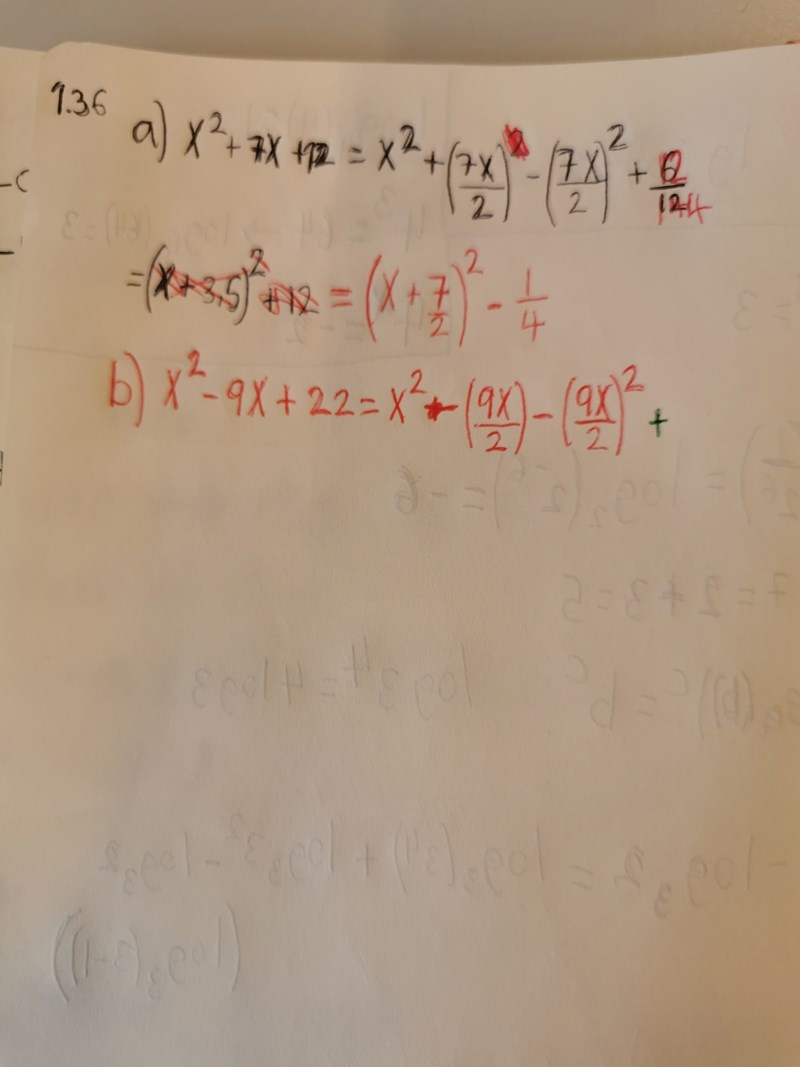 1.36
a) x² + 7x + 12 = x² + (7x/2) - (7x/2)² +
= (x + 3,5)² + 12 = (x + 7/2)² - 1/4
b) x² - 9x + 22 = x² - (9x/2) - (9x/2)² +